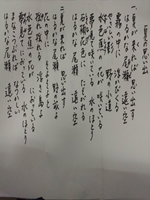 夏の思い出
一、夏が来れば 思い出す
はるかな尾瀬 遠い空
霧の中に うかびくる
やさしい影 野の小径
水芭蕉の花が 咲いている
夢見て咲いている 水のほとり
石楠花色に たそがれる
はるかな尾瀬 遠い空
二、夏が来れば 思い出す
はるかな尾瀬 野の旅よ
花の中に そよそよと
ゆれゆれる 浮き島よ
水芭蕉の花が 匂っている
夢見て匂っている 水のほとり
まなこつぶれば なつかしい
はるかな尾瀬 遠い空